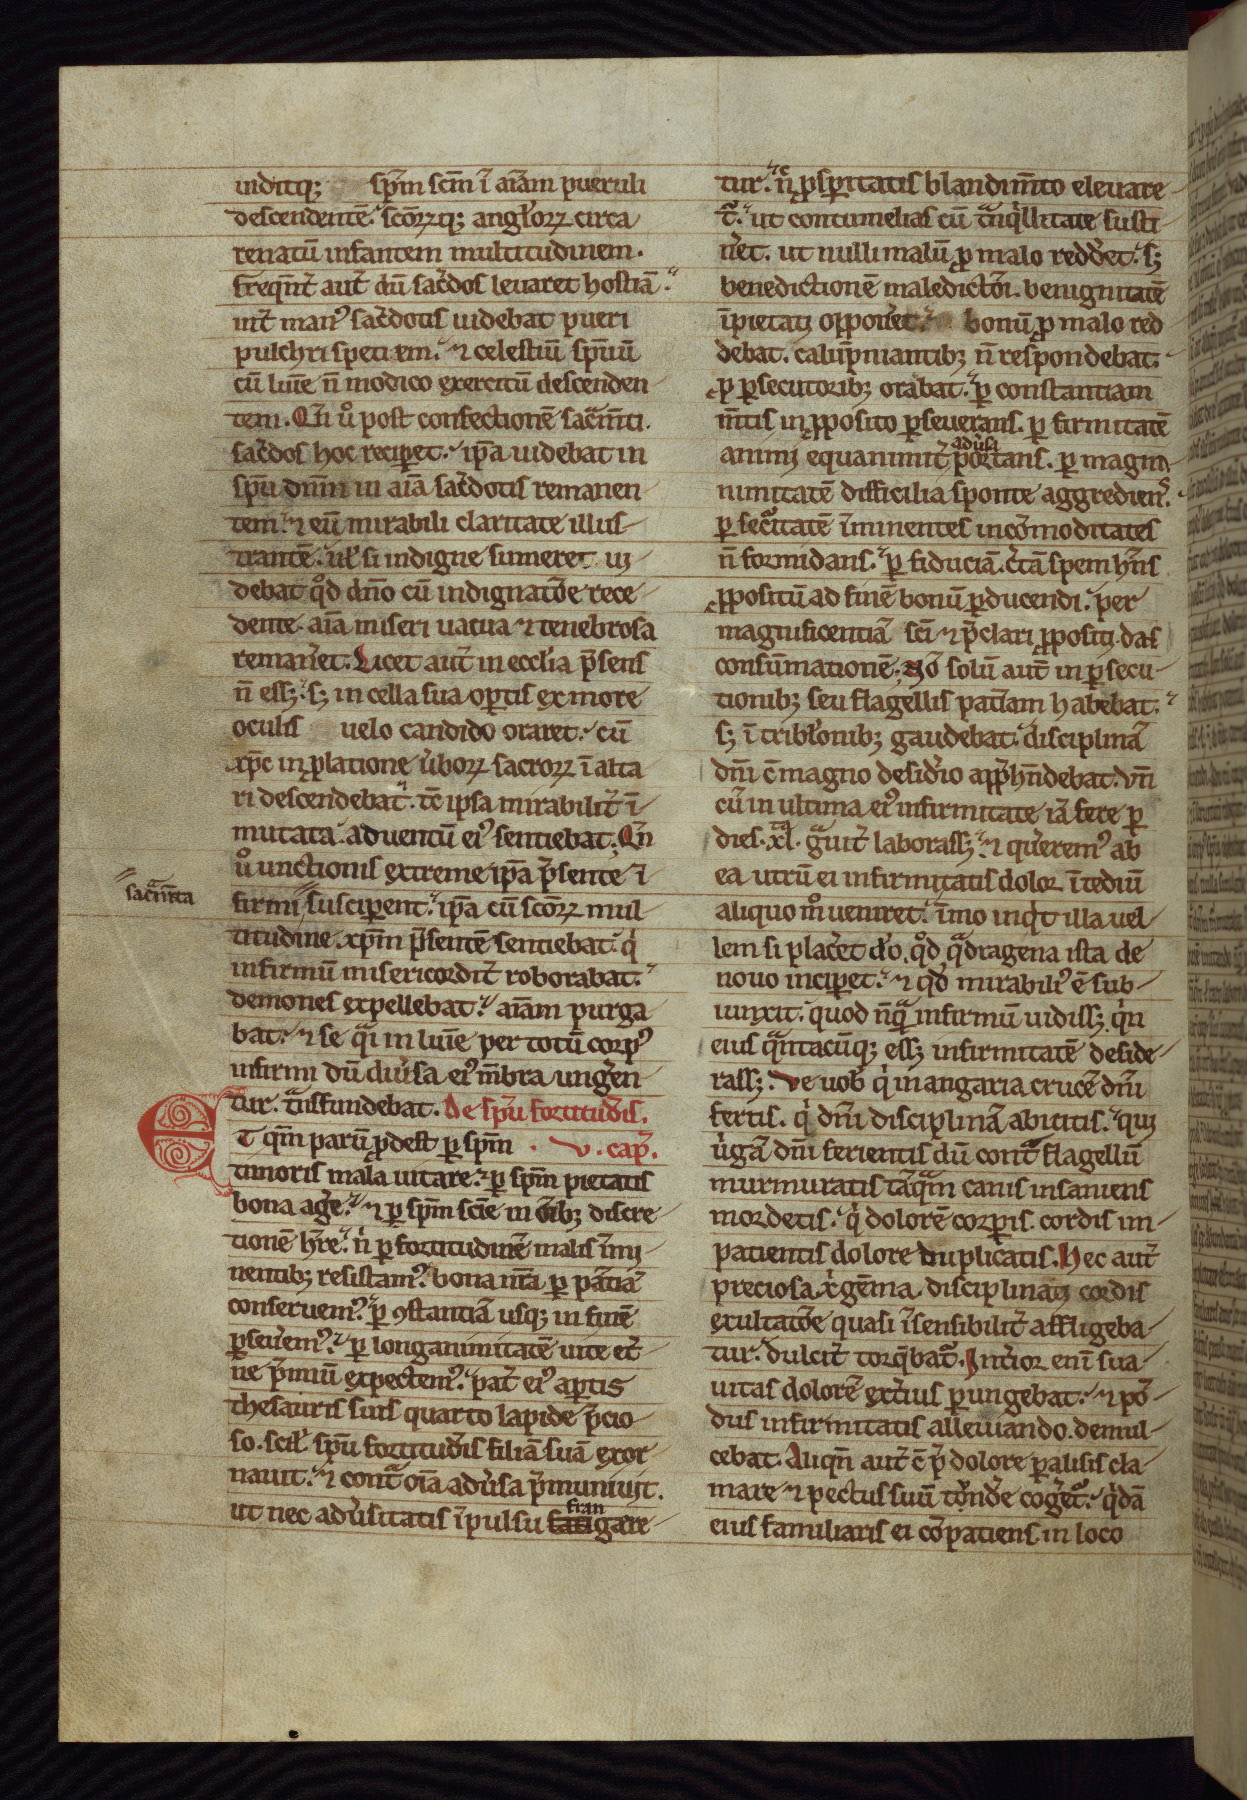 uiditq; sp̄m scm̄ ī aīam pueruli
descendentē. scōꝝq; angl̓oꝝ circa
renatū infantem multitudinem.
freqn̄t̓ aut̄ dū sac̓dos leuaret hostiā.
int̓ manꝰ sac̓dotis uidebat pueri
pulchri speciem. ⁊ celestiū sp̄uū
cū lum̄e n̄ modico exercitū descenden
tem. Qn̄ u̓o post confectionē sac̓mn̄ti.
sac̓dos hoc recip̓et. ip̄a uidebat in
sp̄u dn̄m in aīa sac̓dotis remanen
tem. ⁊ eū mirabili claritate illus
trantē. ul̓ si indigne sumeret ui
debat qd̓ dn̄o cū indignat̓oe rece
dente. aīa miseri uacua ⁊ tenebrosa
reman̓et. Licet aut̄ in eccl̓ia p̄sens
n̄ ess;. s; in cella sua op̓tis ex more
oculis uelo candido oraret. cū
xp̄c in ꝓlatione u̓boꝝ sacroꝝ ī alta
ri descendebat. tc̄ ipsa mirabilit̓ ī
mutata. aduentū eiꝰ sentiebat. Qn̄
u̓o unctionis extreme ip̄a p̄sente ī
sac̓mn̄ta
firmi suscip̓ent. ip̄a cū scōꝝ mul
titudine. xp̄m p̄sentē sentiebat. q̓
infirmū misericordit̓ roborabat.
demones expellebat. aīam purga
bat. ⁊ se q̓i in lum̄e per totū corpꝰ
infirmi dū diu̓sa eiꝰ mēbra unge̓n
tur. t̓nsfundebat. De sp̄u fortitud̓is.
Et qm̄ parū ꝓdest ꝑ sp̄m . v. cap̓.
timoris mala uitare. ⁊ ꝑ sp̄m pietatis
bona age̓. ⁊ ꝑ sp̄m scīe in om̄ib; discre
tionē hr̄e. n̓ ꝑ fortitudinē malis īmi
nentib; resistamꝰ. bona nr̄a ꝑ pat̄iā
conseruemꝰ. ꝑ ꝯstantiā usq; in finē
ꝑseu̓emꝰ. ⁊ ꝑ longanimitatē uite et̓
ne p̄miū expectemꝰ. pat̓ eiꝰ ap̓tis
thesauris suis quarto lapide p̄cio
so. scil̓ sp̄u fortitud̓is filiā suā exor
nauit. ⁊ cont̓ oīa adu̓sa p̄muniuit.
ut nec adu̓sitatis īpulsu fran fatigare
tur. n̄ ꝓsp̓itatis blandim̄to eleuare
t̓. ut contumelias cū t̓nq̓llitate susti
n̓et. ut nulli malū ꝓ malo redd̓et. s;
benedictionē maledict̓oi. benignitatē
īpietati oppon̓et. bonū ꝓ malo red
debat. calūpniantib; n̄ respondebat.
ꝓ ꝑsecutorib; orabat. ꝑ constantiam
mn̄tis in ꝓposito ꝑseuerans. ꝑ firmitatē
animi equanimit̓ adu̓sa portans. ꝑ magna
nimitatē difficilia sponte aggrediens.
ꝑ secu̓itatē īminentes incōmoditates
n̄ formidans. ꝑ fiduciā. c̓tā spem hn̄s
ꝓpositū ad finē bonū ꝑducendi. per
magnificentiā sc̄i ⁊ p̄clari ꝓpositi. das
consūmationē. No̅ solū aut̄ in ꝑsecu
tionib; seu flagellis pat̄iam habebat.
s; ī tribl̓onib; gaudebat. disciplinā
dn̄i c̄ magno desid̓io app̓hn̄debat. vn̄
cū in ultima eiꝰ infirmitate iā fere ꝑ
dies. xl. g̓uit̓ laborass;. ⁊ quer̓emꝰ ab
ea utrū ei infirmitatis dolor ī tediū
aliquo m̊ ueniret. īmo inq̓t illa uel
lem si plac̓et dō, qd̓ q̓dragena ista de
nouo incip̓et. ⁊ qd̓ mirabiliꝰ ē sub
iunxit. quod nq̓ infirmū uidiss; q̓n
eius q̓ntacūq; ess; infirmitatē deside
rass;. Ve uob̓ q̓ in angaria crucē dn̄i
fertis. q̓ dn̄i disciplinā abicitis. qui
u̓gā dn̄i ferientis dū cont̓ flagellū
murmuratis tāq̓m canis insaniens
mordetis. q̓ dolorē corp̓is. cordis im
patientis dolore duplicatis. Hec aut̄
preciosa xp̓i gēma. disciplinati cordis
exultat̓oe quasi īsensibilit̓ affligeba
tur. dulcit̓ torq̓bat̓. Int̓ior enī sua
uitas dolorē ext̓ius ꝑungebat. ⁊ po̓
dus infirmitatis alleuiando. demul
cebat. Aliqn̄ aut̄ c̄ p̓ dolore ꝑalisis cla
mare ⁊ pectus suū tond̓e cog̓et̓. q̓dā
eius familiaris ei cōpatiens in loco